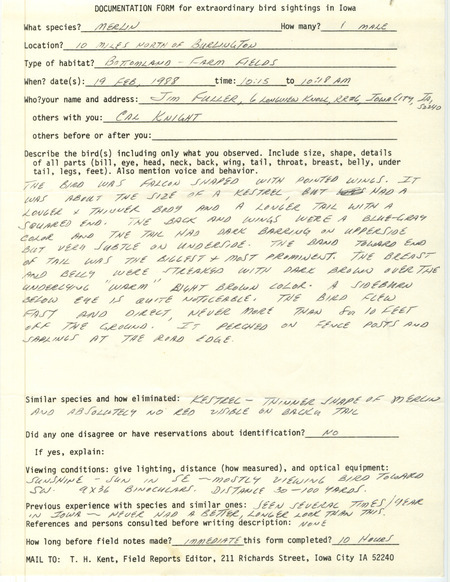 DOCUMENTATION FORM for extraordinary bird sightings in Iowa
What species? MERLIN How many? 1 MALE
Location? 10 MILES NORTH OF BURLINGTON
Type of habitat? BOTTOMLAND - FARM FIELDS
When? date(s): 19 FEB, 1988 time: 10:15 to 10:18 AM
Who?your name and address: JIM FULLER, 6 LONGVIEW KNOLL, RR#6, IOWA CITY, IA, 52240
others with you: CAL KNIGHT
others before or after you:
Describe the bird(s) including only what you observed. Include size, shape, details
of all parts (bill, eye, head, neck, back, wing, tail, throat, breast, belly, under
tail, legs, feet). Also mention voice and behavior.
THE BIRD WAS FALCON SHAPED WITH POINTED WINGS. IT
WAS ABOUT THE SIZE OF A KESTREL, BUT HAD A
LONGER & THINNER BODY AND A LONGER TAIL WITH A
SQUARED END. THE BACK AND WINGS WERE A BLUE-GRAY
COLOR AND THE TAIL HAD DARK BARRING ON UPPERSIDE
BUT VERY SUBTLE ON UNDERSIDE. THE BAND TOWARD END
OF TAIL WAS THE BIGGEST & MOST PROMINENT. THE BREAST
AND BELLY WERE STREAKED WITH DARK BROWN OVER THE
UNDERLYING "WARM" LIGHT BROWN COLOR. A SIDEBURN
BELOW EYE IS QUITE NOTICEABLE. THE BIRD FLEW
FAST AND DIRECT, NEVER MORE THAN 8 OR 10 FEET
OFF THE GROUND. IT PERCHED ON FENCE POSTS AND
SAPLINGS AT THE ROAD EDGE.
Similar species and how eliminated: KESTREL - THINNER SHAPE OF MERLIN
AND ABSOLUTELY NO RED VISIBLE ON BACK & TAIL
Did any one disagree or have reservations about identification? NO
If yes, explain:
Viewing conditions: give lighting, distance (how measured), and optical equipment:
SUNSHINE - SUN IN SE - MOSTLY VIEWING BIRD TOWARD
SW. 9X36 BINOCULARS. DISTANCE 30-100 YARDS.
Previous experience with species and similar ones: SEEN SEVERAL TIMES/YEAR
IN IOWA - NEVER HAD A BETTER, LONGER LOOK THAN THIS.
References and persons consulted before writing description: NONE
How long before field notes made? IMMEDIATE this form completed? 10 HOURS
MAIL TO: T. H. Kent, Field Reports Editor, 211 Richards Street, Iowa City IA 52240